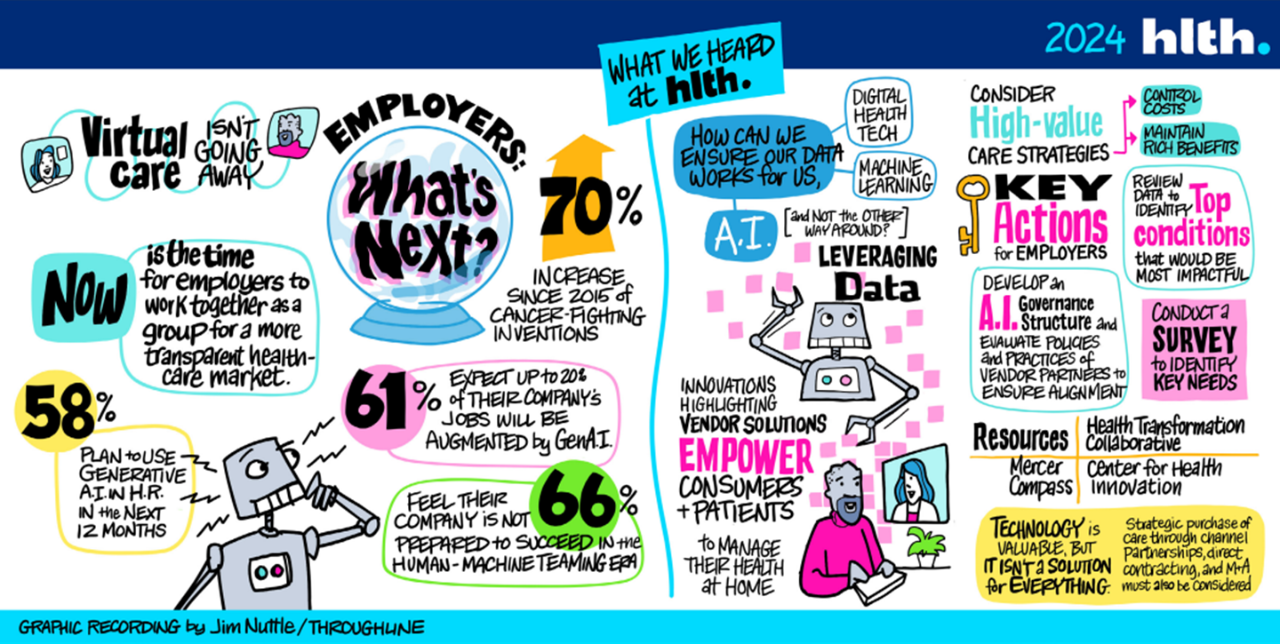 2024 hlth.
WHAT WE HEARD
at hlth.
Virtual
care
ISN'T
GOING
AWAY
EMPLOYERS:
What's
Next?
70%
INCREASE
SINCE 2015 of
CANCER-FIGHTING
INVENTIONS
NOW
is the time
for employers to
work together as a
group for a more
transparent health-
care market.
58%
PLAN to USE
GENERATIVE
A.I. IN H.R.
IN the NEXT
12 MONTHS
61%
EXPECT UP to 20%
of THEIR COMPANY'S
JOBS WILL BE
AUGMENTED by GenA.I.
66%
FEEL THEIR
COMPANY is NOT
PREPARED to SUCCEED IN the
HUMAN-MACHINE TEAMING ERA
HOW CAN WE
ENSURE OUR DATA
WORKS for US,
DIGITAL
HEALTH
TECH
MACHINE
LEARNING
A.I.
[and NOT the OTHER
WAY AROUND?]
LEVERAGING
Data
INNOVATIONS
HIGHLIGHTING
VENDOR SOLUTIONS
EMPOWER
CONSUMERS
+ PATIENTS
to MANAGE
THEIR HEALTH
at HOME
CONSIDER
High-value
CARE STRATEGIES
CONTROL
COSTS
MAINTAIN
RICH BENEFITS
KEY
Actions
for EMPLOYERS
REVIEW
DATA to
IDENTIFY Top
conditions
that WOULD BE
MOST IMPACTFUL
DEVELOP an
A.I. Governance
Structure and
EVALUATE POLICIES
and PRACTICES of
VENDOR PARTNERS to
ENSURE ALIGNMENT
CONDUCT a
SURVEY
to IDENTIFY
KEY NEEDS
Resources
Health Transformation
Collaborative
Mercer
Compass
Center for Health
Innovation
TECHNOLOGY is
VALUABLE, BUT
IT ISN'T a SOLUTION
for EVERYTHING.
Strategic purchase of
care through channel
Partnerships, direct
contracting, and M+A
must also be considered
GRAPHIC RECORDING by Jim Nuttle/THROUGHLINE